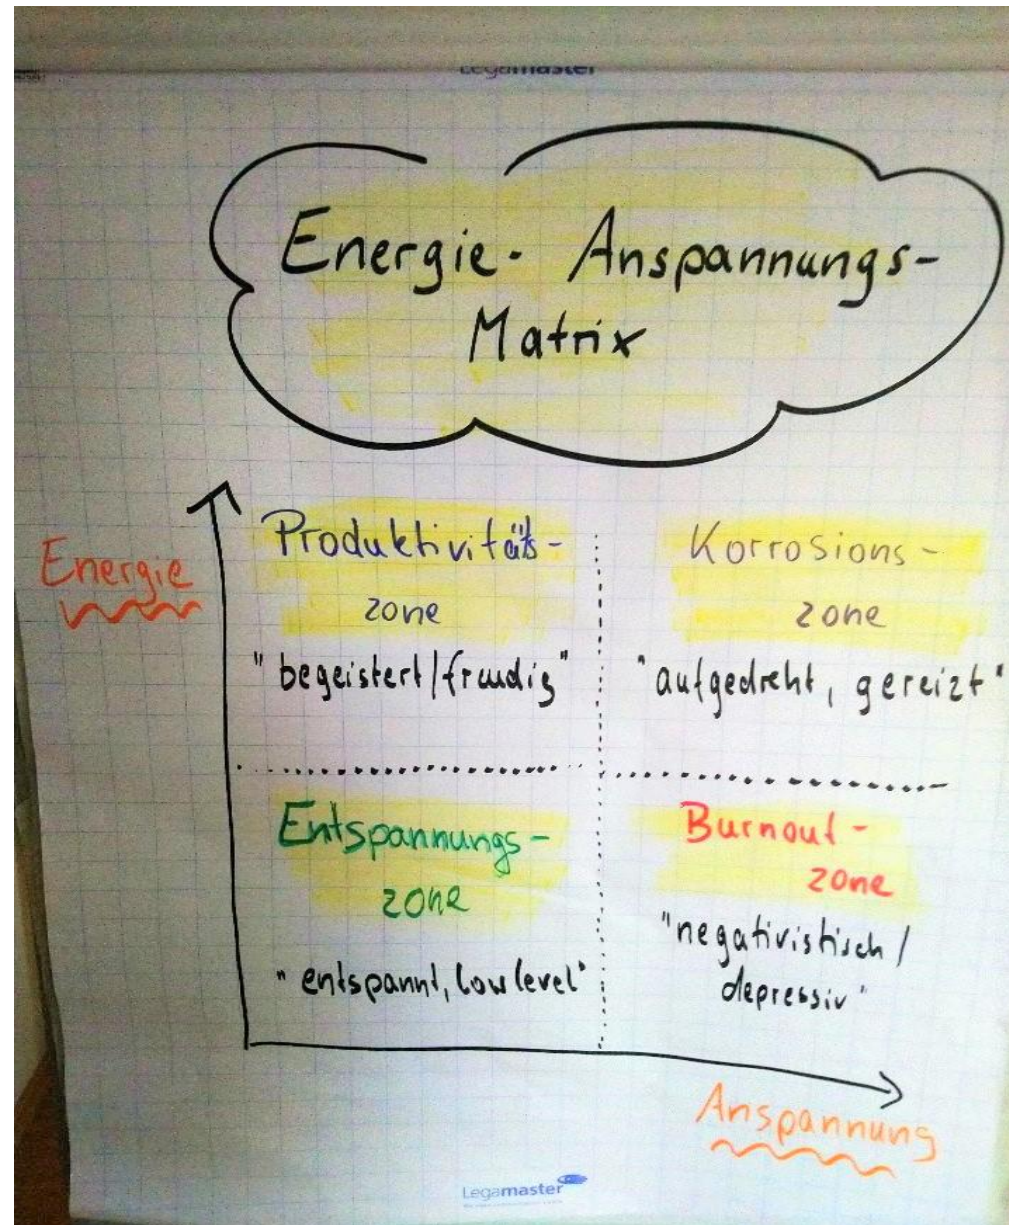 Legamaster
Energie- Anspannungs-
Matrix
Energie
Produktivitäts-
zone
"begeistert/freudig"
Korrosions-
zone
"aufgedreht, gereizt"
Entspannungs-
zone
"entspannt, low level"
Burnout-
zone
"negativistisch/
depressiv"
Anspannung
Legamaster